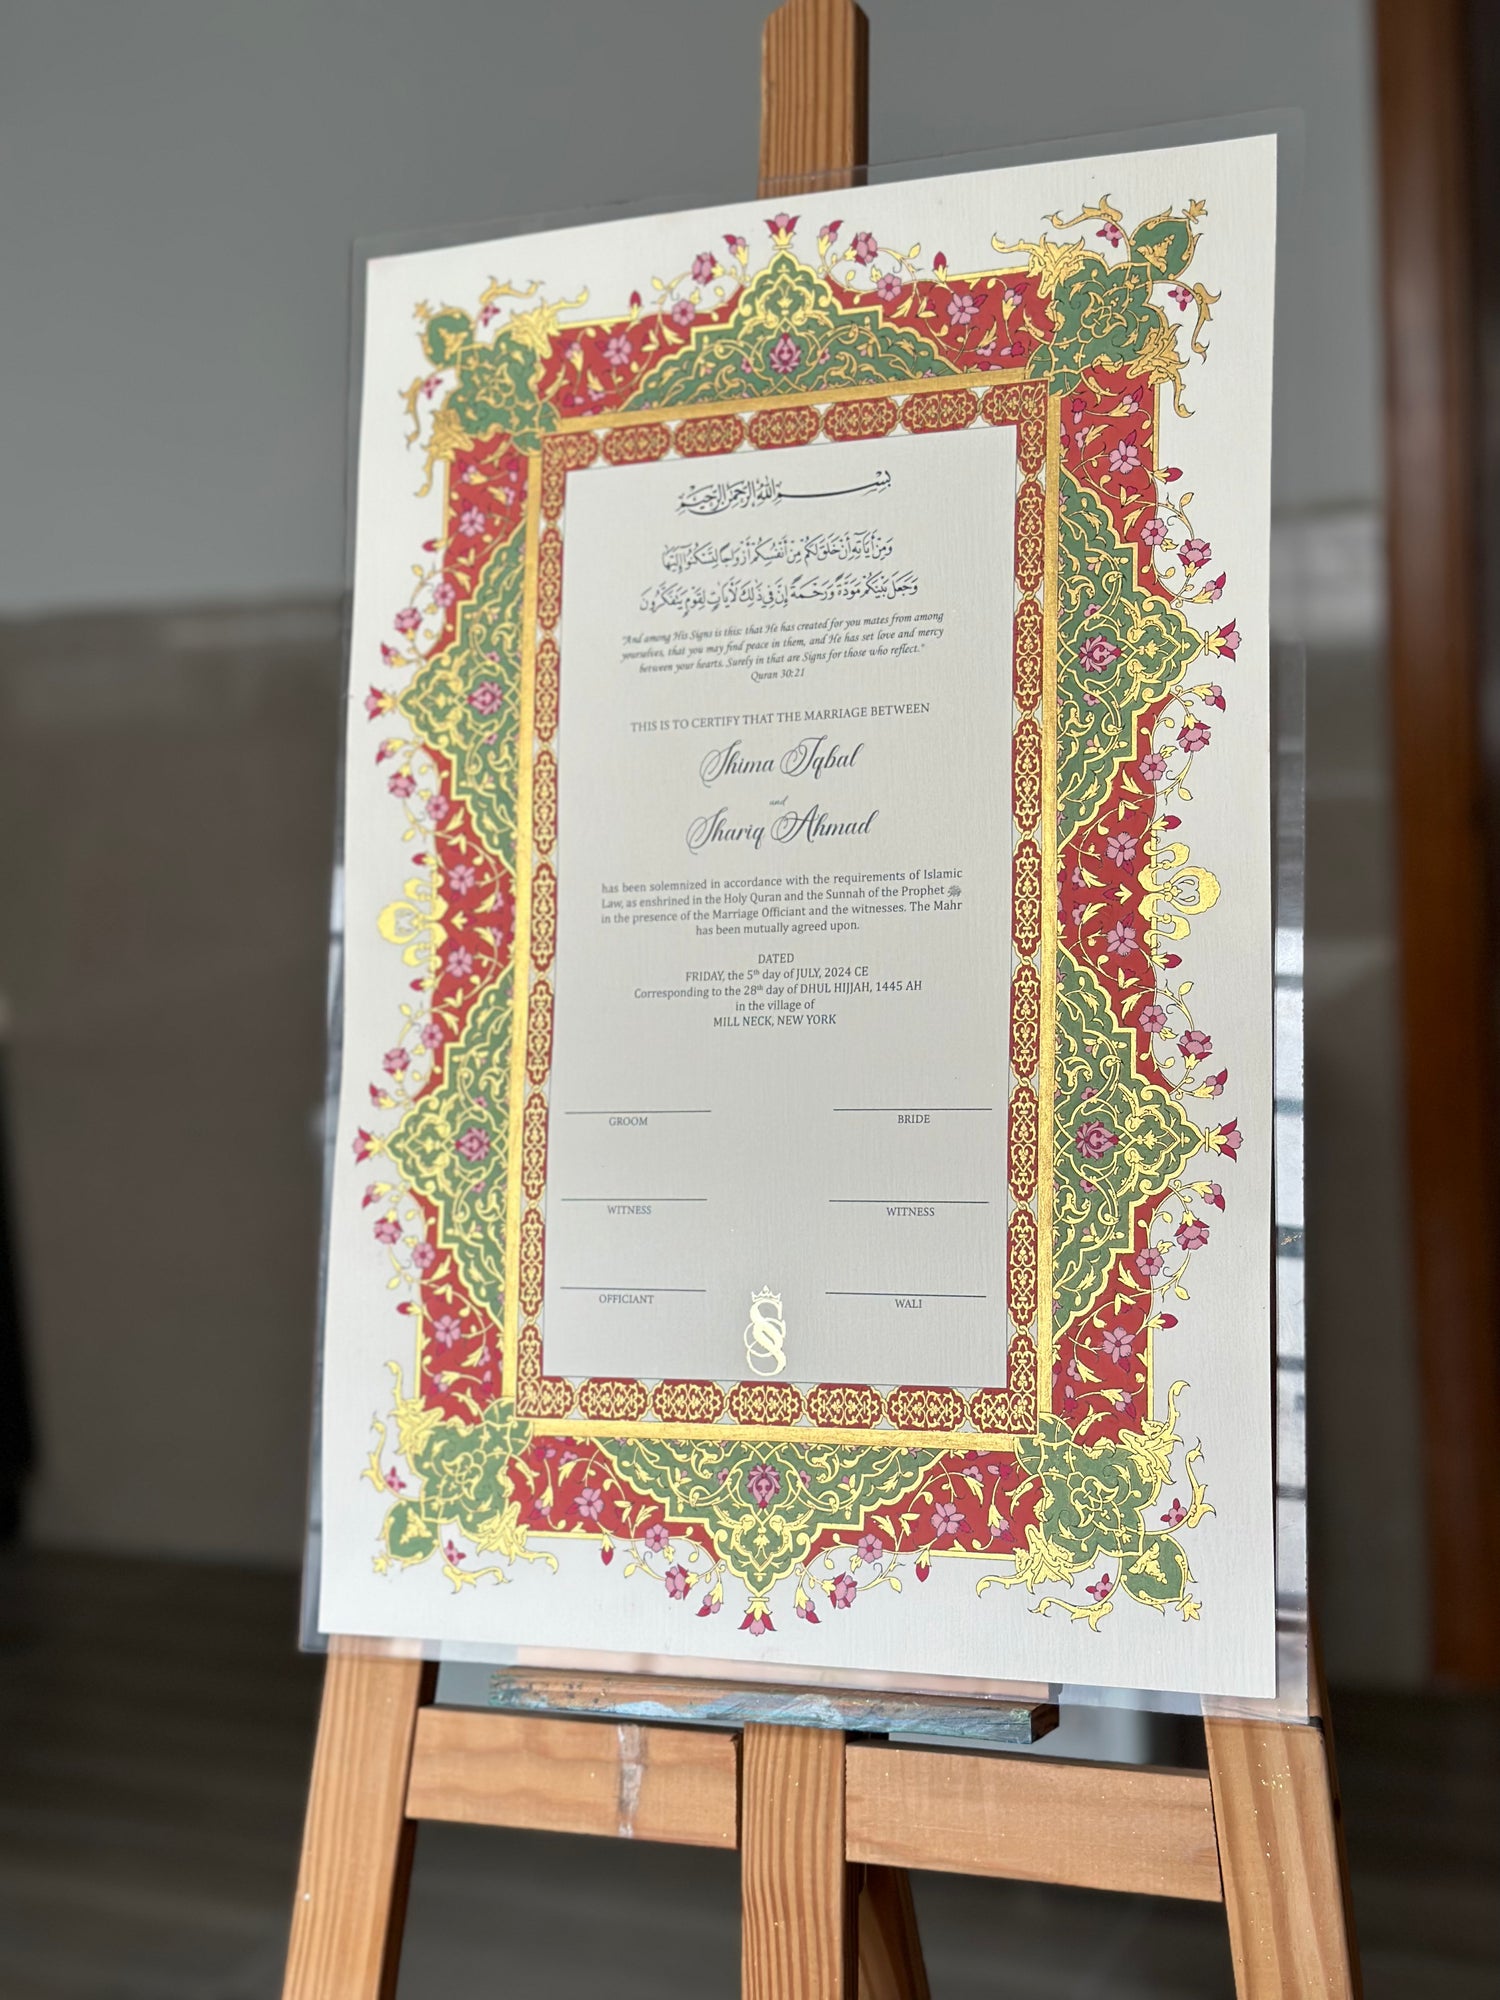 بسم الله الرحمن الرحيم
وَمِنْ آيَاتِهِ أَنْ خَلَقَ لَكُمْ مِنْ أَنْفُسِكُمْ أَزْوَاجًا لِتَسْكُنُوا إِلَيْهَا
وَجَعَلَ بَيْنَكُمْ مَوَدَّةً وَرَحْمَةً إِنَّ فِي ذَٰلِكَ لَآيَاتٍ لِقَوْمٍ يَتَفَكَّرُونَ
"And among His Signs is this: that He has created for you mates from among
yourselves, that you may find peace in them, and He has set love and mercy
between your hearts. Surely in that are Signs for those who reflect."
Quran 30:21
THIS IS TO CERTIFY THAT THE MARRIAGE BETWEEN
Shima Iqbal
and
Shariq Ahmad
has been solemnized in accordance with the requirements of Islamic
Law, as enshrined in the Holy Quran and the Sunnah of the Prophet ﷺ
in the presence of the Marriage Officiant and the witnesses. The Mahr
has been mutually agreed upon.
DATED
FRIDAY, the 5th day of JULY, 2024 CE
Corresponding to the 28th day of DHUL HIJJAH, 1445 AH
in the village of
MILL NECK, NEW YORK
GROOM BRIDE
WITNESS WITNESS
OFFICIANT WALI
SS